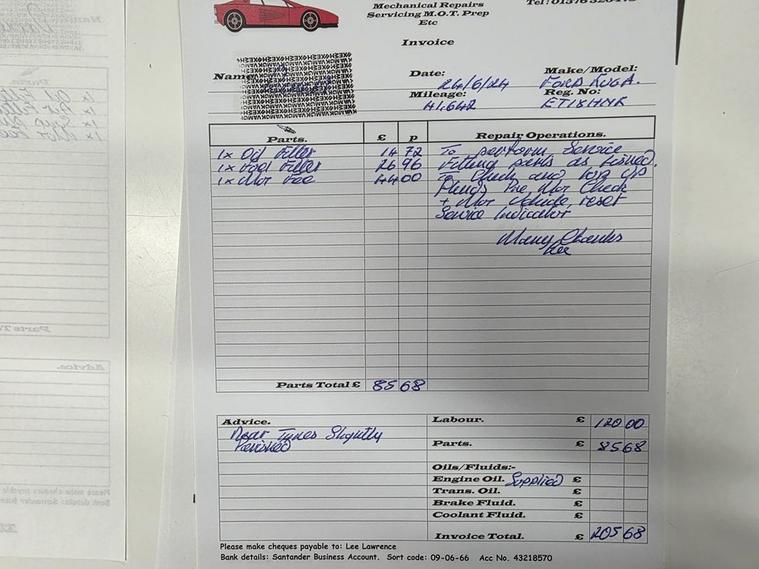 Mechanical Repairs
Servicing M.O.T. Prep
Etc
Invoice
Name
Date: 24/6/24
Make/Model: FORD KUGA.
Mileage: 41,642
Reg. No:
Parts. £ p
Repair Operations.
1x Oil Filter 14 72
1x Fuel Filter 26 96
1x Mot Fee 44 00
To perform Service
Fitting parts as
To Check and top up
Fluids Pre Mot Check
+ Mot Vehicle, reset
Service Indicator
Many Thanks
Lee
Parts Total £ 85 68
Advice.
Rear Tyres Slightly
Perished
Labour. £ 120 00
Parts. £ 85 68
Oils/Fluids:-
Engine Oil. Supplied £
Trans. Oil. £
Brake Fluid. £
Coolant Fluid. £
Invoice Total. £ 205 68
Please make cheques payable to: Lee Lawrence
Bank details: Santander Business Account. Sort code: 09-06-66 Acc No. 43218570